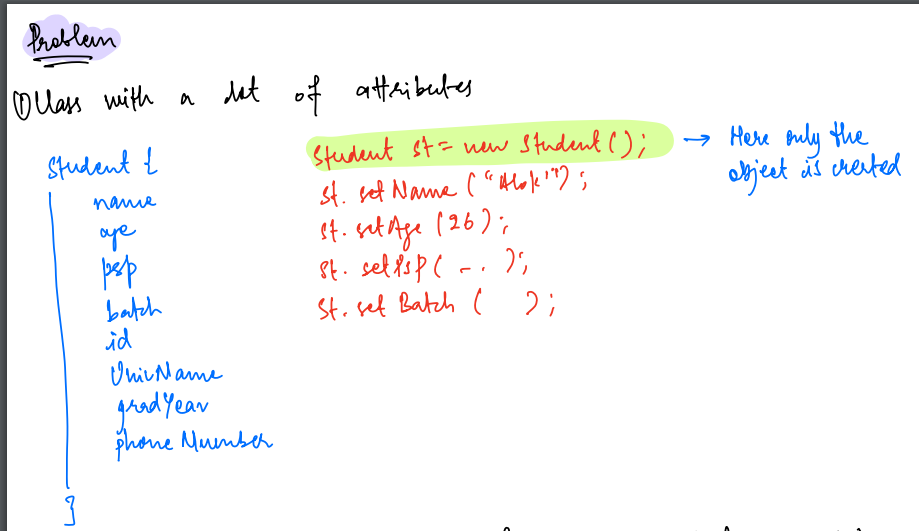 Problem
① Class with a lot of attributes
Student {
name
age
psp
batch
id
UnivName
gradYear
phone Number
}
Student st = new Student();
st. set Name ("Alok");
st. setAge (26);
st. setPsp( -. );
st. set Batch ( );
→ Here only the
object is created